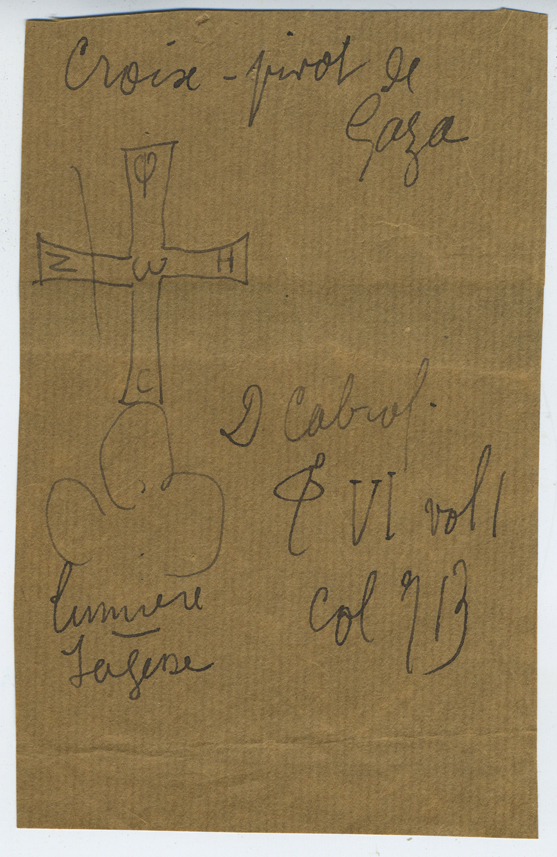 Croix - pivot de
Gaza
φ
Z ω H
C
D Cabrol.
T VI vol 1
col 713
lumière
Sagesse